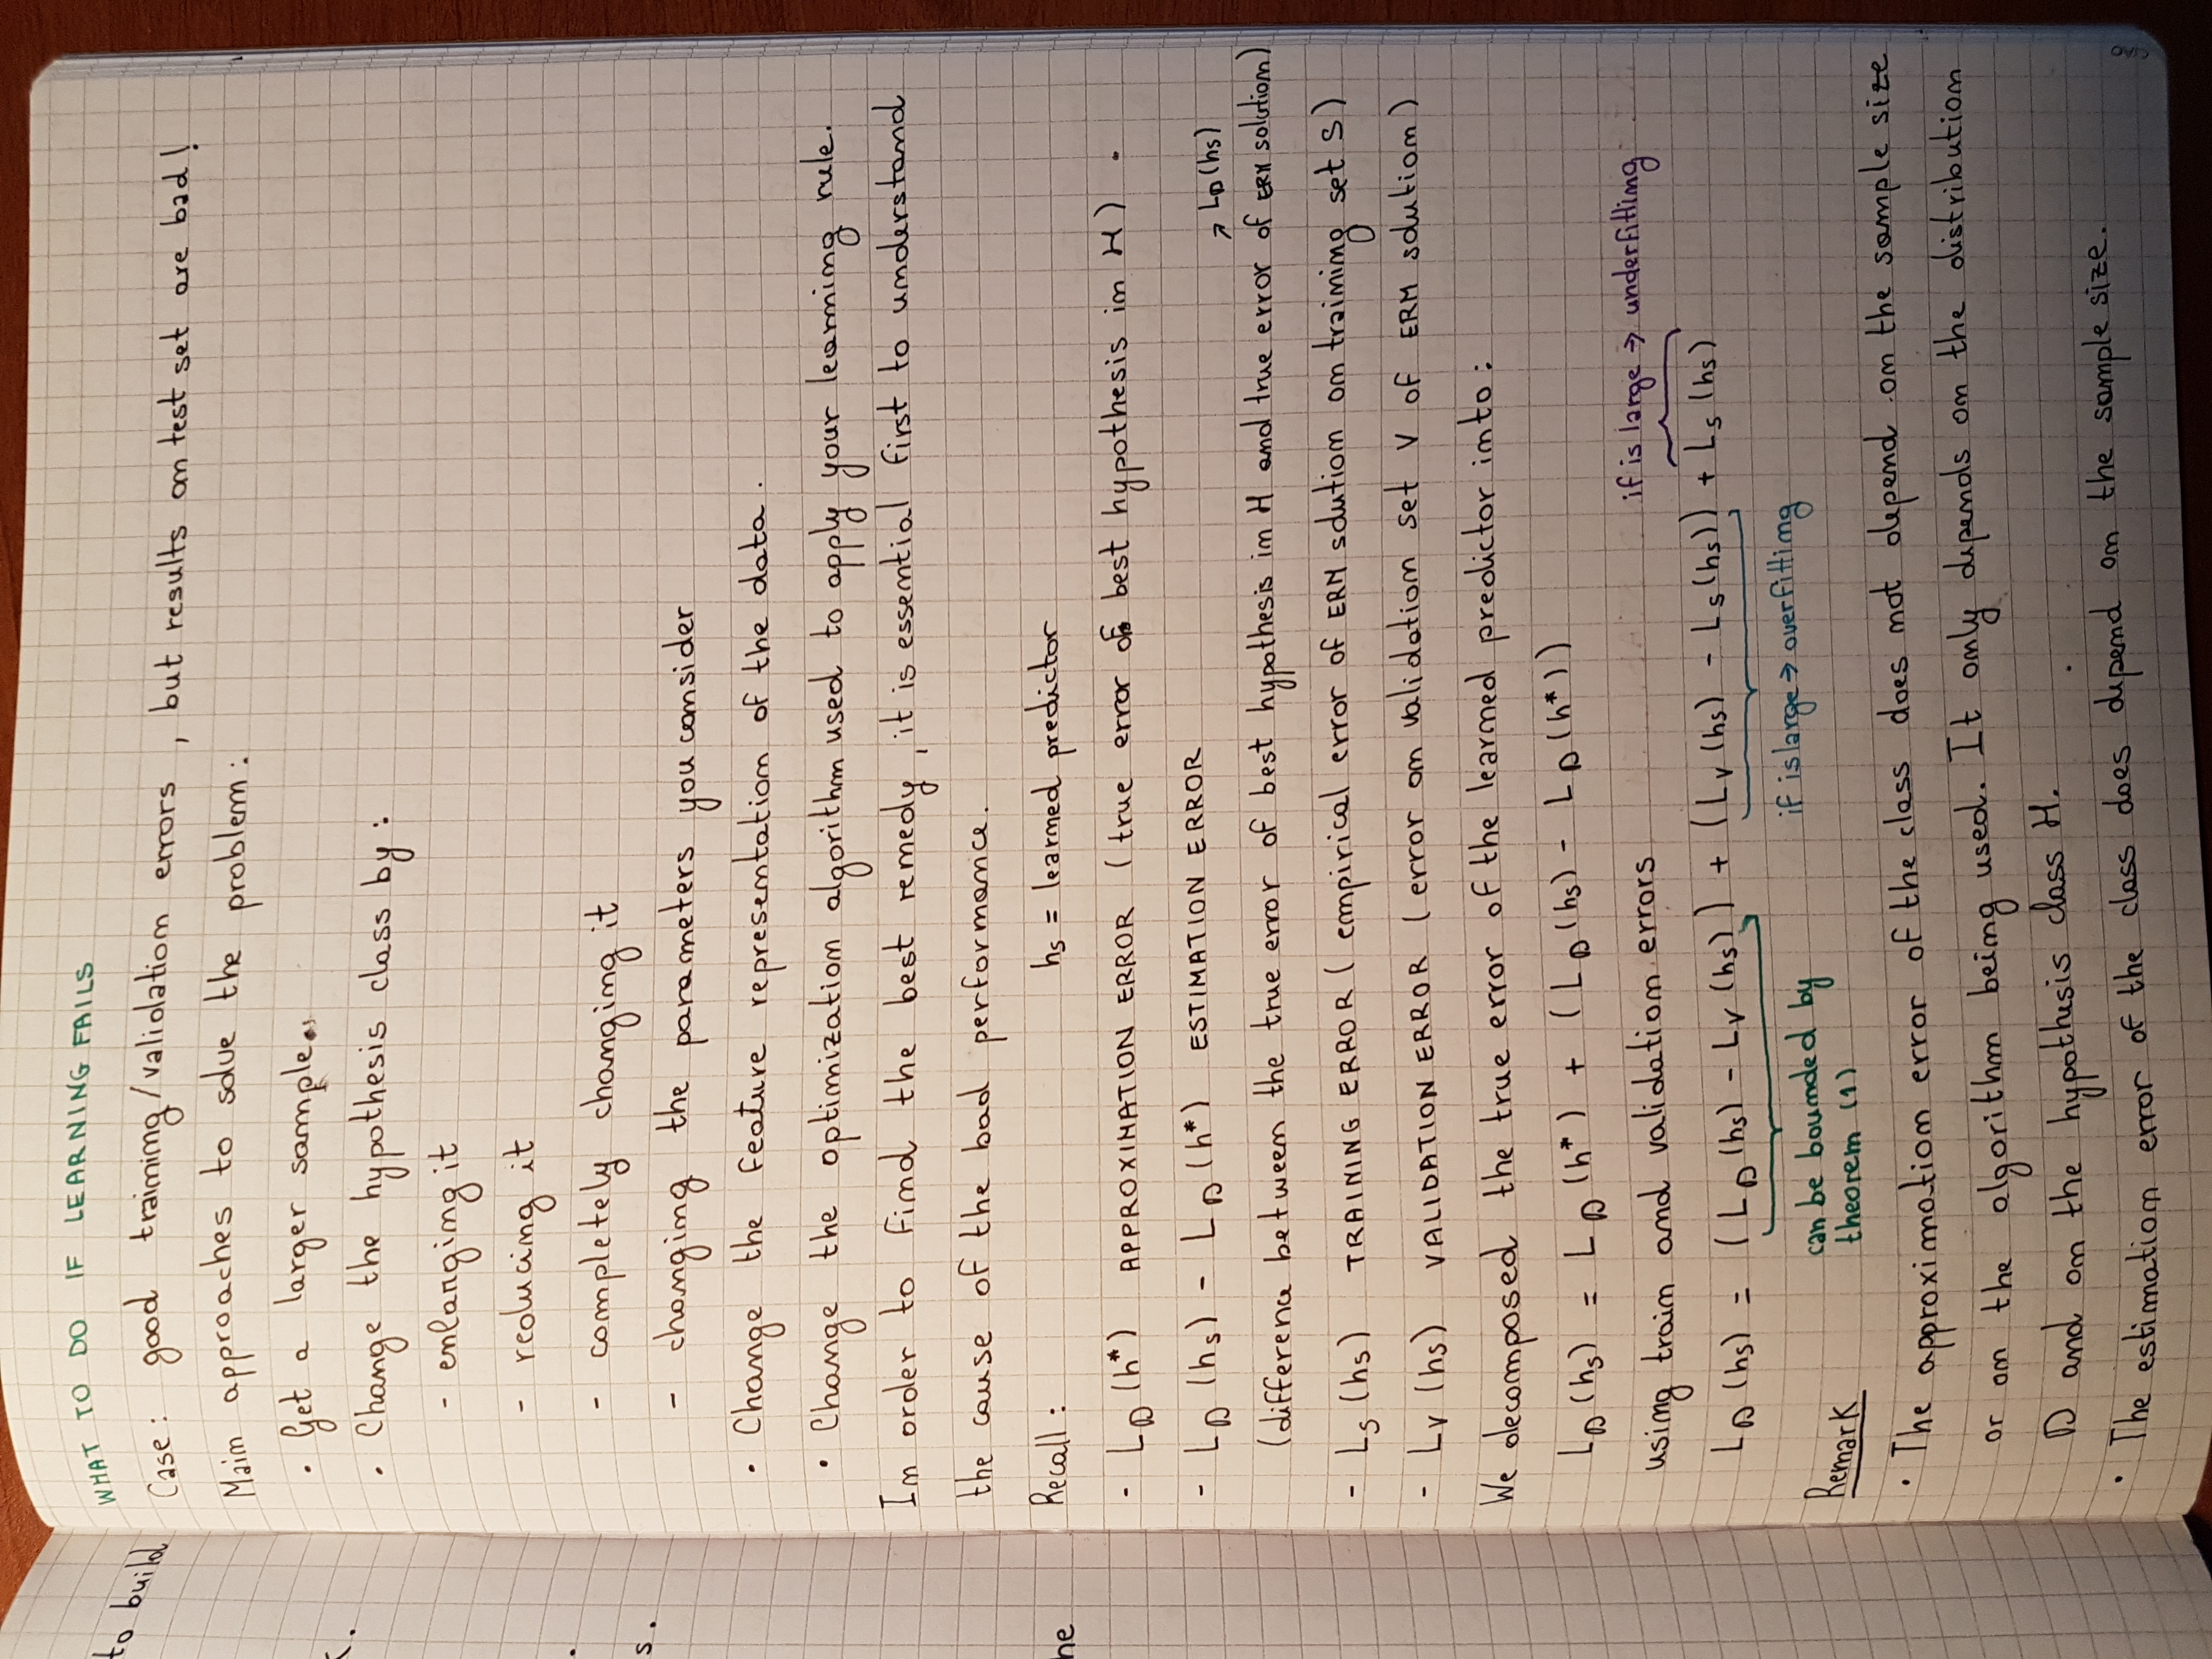 to build
WHAT TO DO IF LEARNING FAILS
Case: good training/validation errors, but results on test set are bad!
Main approaches to solve the problem:
• Get a larger sample.
• Change the hypothesis class by:
- enlarging it
- reducing it
- completely changing it
- changing the parameters you consider
• Change the feature representation of the data.
• Change the optimization algorithm used to apply your learning rule.
In order to find the best remedy, it is essential first to understand
the cause of the bad performance.
s.
he
Recall: hs = learned predictor
- L_D (h*) APPROXIMATION ERROR (true error of best hypothesis in H).
- L_D (hs) - L_D (h*) ESTIMATION ERROR
→ L_D (hs)
(differenc between the true error of best hypothesis in H and true error of ERM solution)
- Ls (hs) TRAINING ERROR (empirical error of ERM solution on training set S)
- Lv (hs) VALIDATION ERROR (error on validation set V of ERM solution)
We decomposed the true error of the learned predictor into:
L_D (hs) = L_D (h*) + (L_D (hs) - L_D (h*))
using train and validation errors
if is large → underfitting
L_D (hs) = (L_D (hs) - Lv (hs)) + (Lv (hs) - Ls (hs)) + Ls (hs)
can be bounded by
theorem (1)
if is large → overfitting
Remark
• The approximation error of the class does not depend on the sample size
or on the algorithm being used. It only depends on the distribution
D and on the hypothesis class H.
• The estimation error of the class does depend on the sample size.